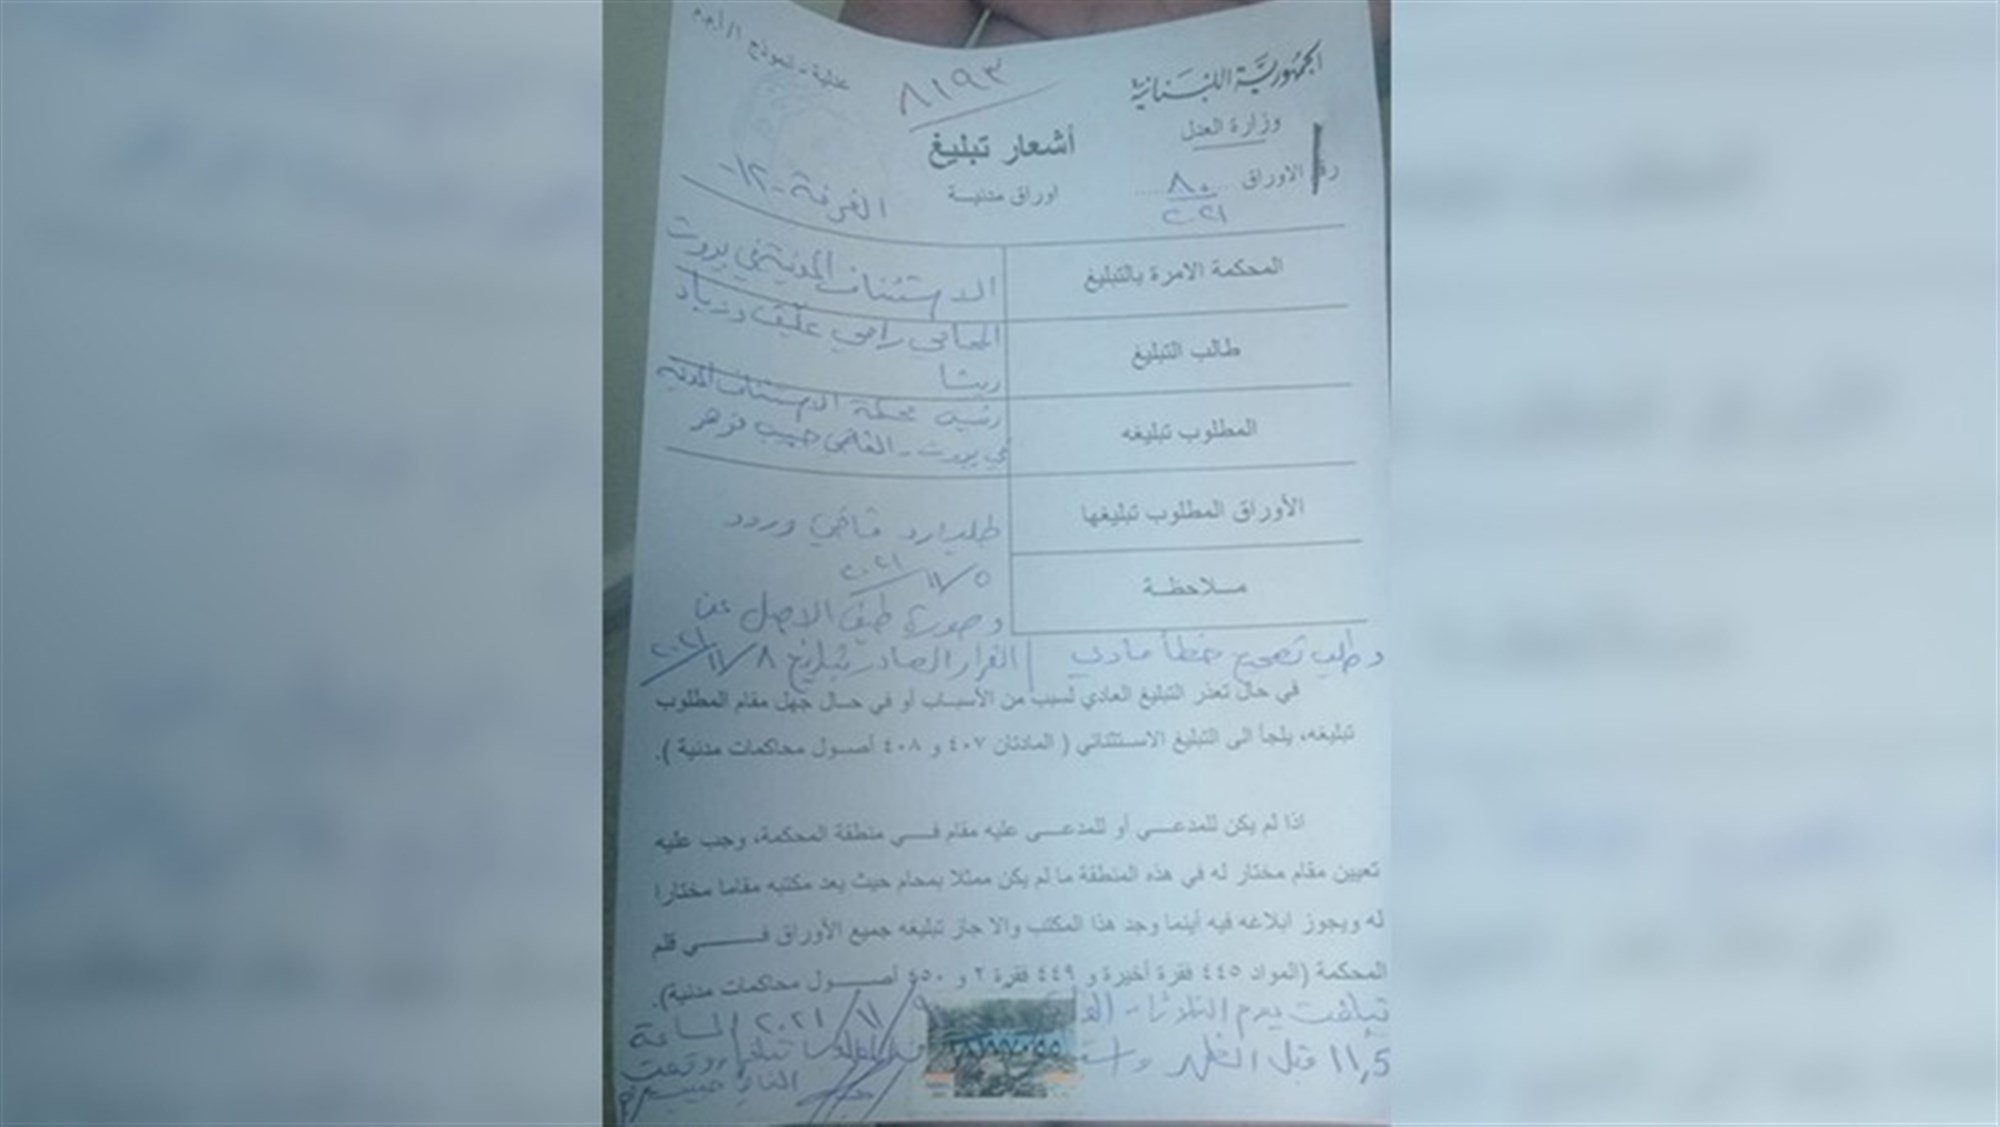 عدلية - نموذج ١/أ.م.م
الجمهورية اللبنانية
٨١٩٣
وزارة العدل
أشعار تبليغ
رقم الاوراق ٨٠
٢٠٢١
اوراق مدنيـة
الغرفة -١٢-
المحكمة الامرة بالتبليغ
الاستئناف المدنية في بيروت
طالب التبليغ
المحامي رامي عليق وزياد
ريشا
المطلوب تبليغه
رئيس محكمة الاستئناف المدنية
في بيروت - القاضي حبيب مزهر
الأوراق المطلوب تبليغها
طلب رد قاضي وردد
ملاحظـة
٢٠٢١/١١/٥
وصورة طبق الاصل عن
القرار الصادر بتاريخ ٢٠٢١/١١/٨
وطلب تصحيح خطأ مادي
في حال تعذر التبليغ العادي لسبب من الأسباب أو في حال جهل مقام المطلوب
تبليغه، يلجأ الى التبليغ الاستثنائي ( المادتان ٤٠٧ و ٤٠٨ أصول محاكمات مدنية ).
اذا لم يكن للمدعي أو للمدعى عليه مقام في منطقة المحكمة، وجب عليه
تعيين مقام مختار له في هذه المنطقة ما لم يكن ممثلا بمحام حيث يعد مكتبه مقاما مختارا
له ويجوز ابلاغه فيه أينما وجد هذا المكتب والا جاز تبليغه جميع الأوراق في قلم
المحكمة (المواد ٤٤٥ فقرة أخيرة و ٤٤٩ فقرة ٢ و ٤٥٠ أصول محاكمات مدنية).
تبلغت يوم الثلاثاء - ٩/١١/٢٠٢١ الساعة
١١,٥ قبل الظهر
القاضي حبيب مزهر